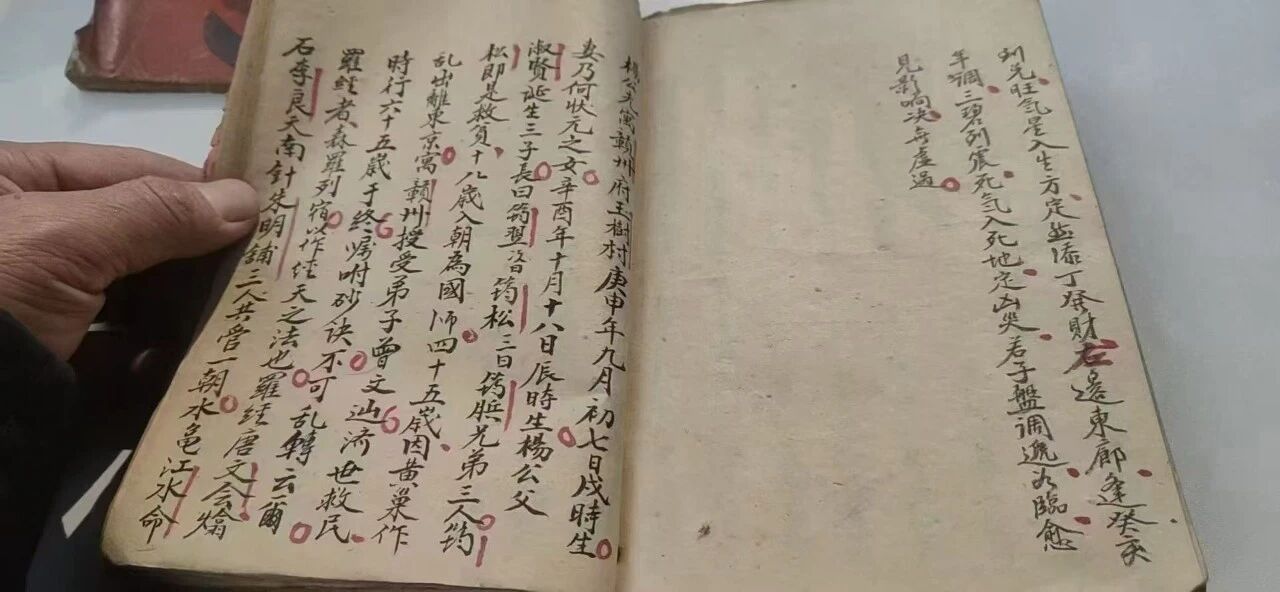 到兑旺气星入生方定然添丁癸財左邉東廊逢癸亥
年调三碧到震死气入死地定凶哭若子盤调遞九臨愈
見影响决無虚過
楊公夫寓贛州府玉樹村庚申年九月初七日戍時生
妻乃何狀元之女辛酉年十月十八日辰時生楊公父
淑賢诞生三子長曰筠翌次曰筠松三曰筠賑兄弟三人筠
松即是救貧十八歲入朝為國师四十五歲因黄巢作
乱出離東京寓贛州授受弟子曾文辿济世救民
時行六十五歲于终嘱咐砂诀不可乱轉云爾
羅經者森羅列宿以作經天之法也羅經唐文会爚
石李良天南針朱明鋪三人共管一朝水亀江水命